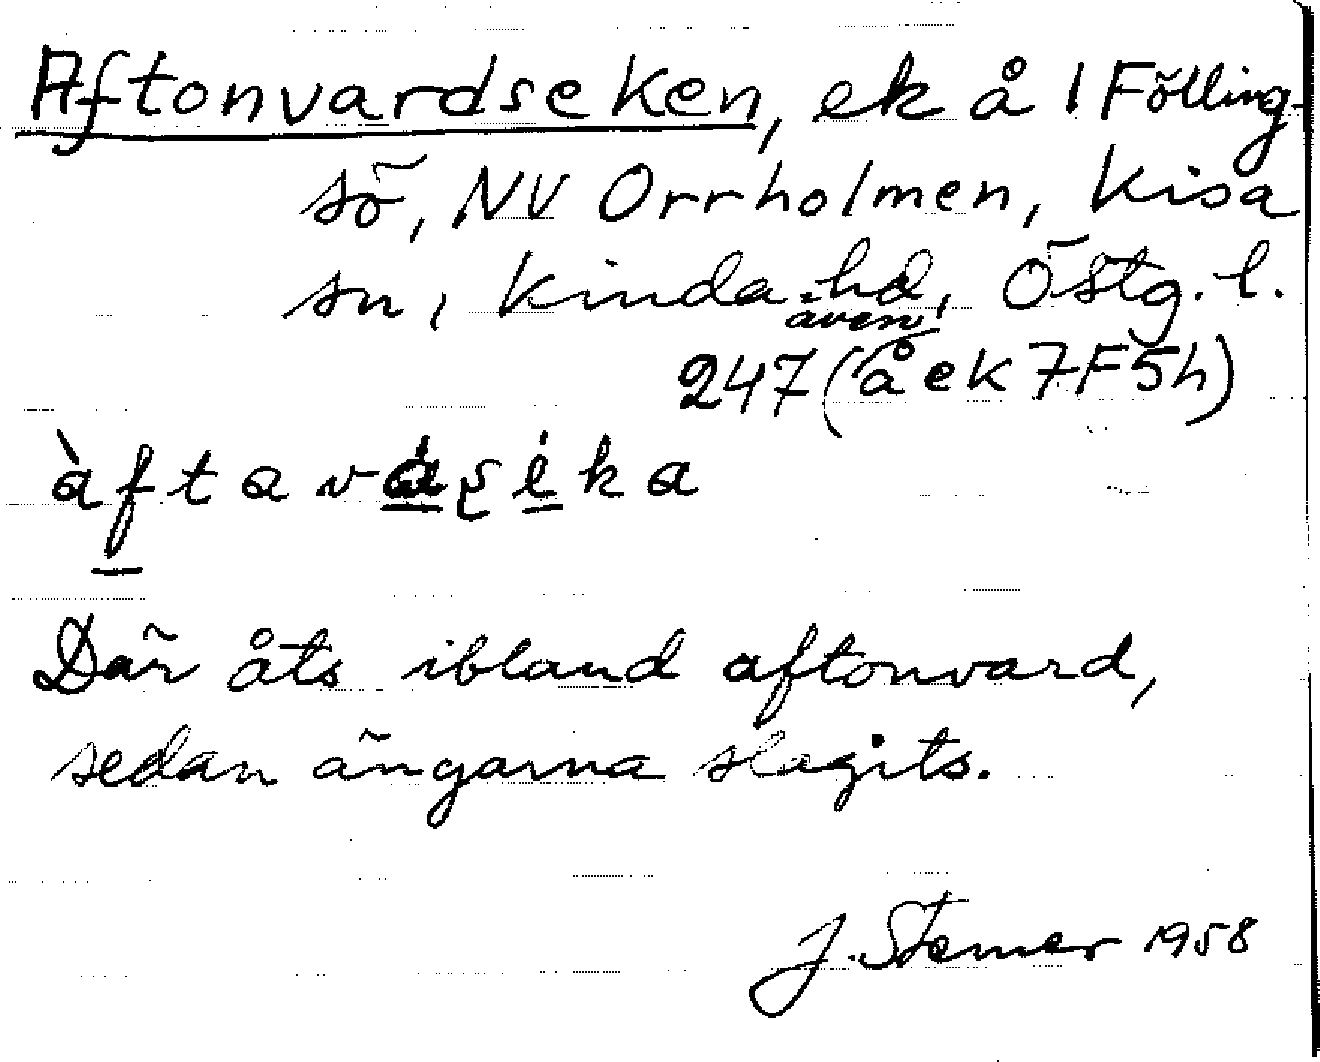 Aftonvardseken, ek å 1 Fölling-
sö, NV Orrholmen, Kisa
sn, Kinda hd, Östg. l.
även
247 (å ek 7F5h)
àftavás̨éka
Där åts ibland aftonvard,
sedan ängarna slagits.
J. Stemer 1958